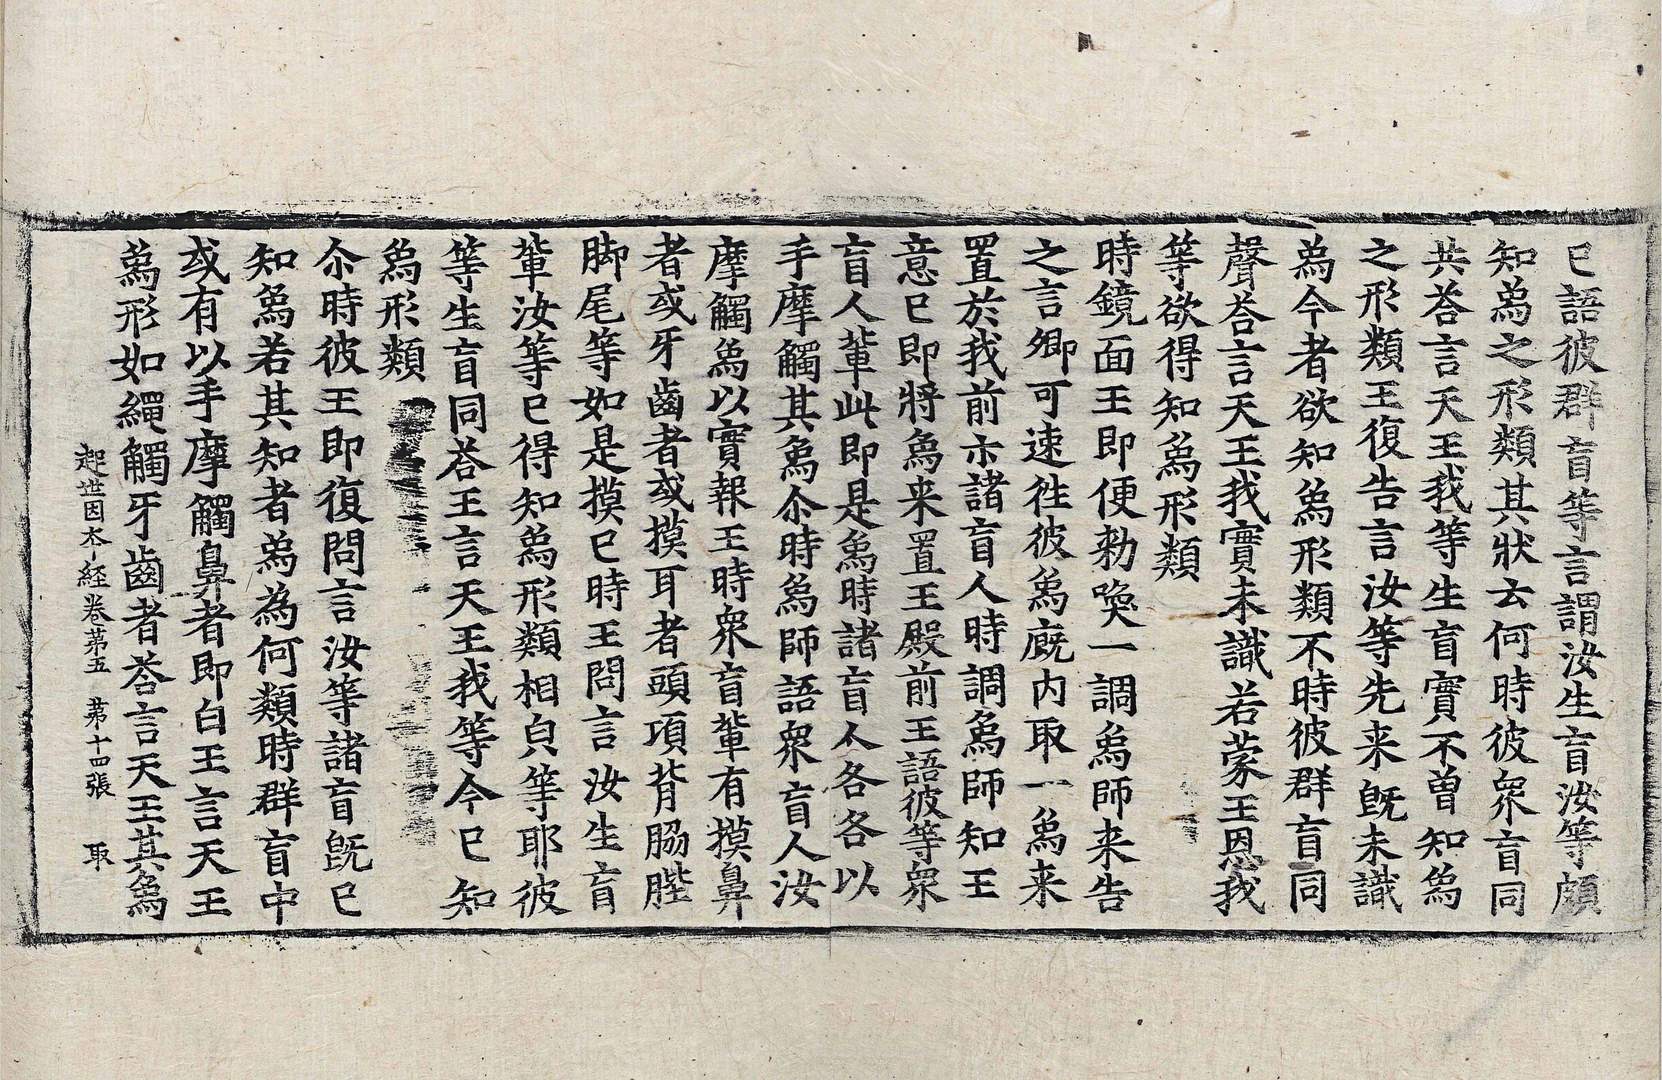 已語彼群盲等言謂汝生盲汝等頗
知為之形類其狀云何時彼衆盲同
共荅言天王我等生盲實不曾知爲
之形類王復告言汝等先来旣未識
為今者欲知爲形類不時彼群盲同
聲荅言天王我實未識若蒙王恩我
等欲得知爲形類
時鏡面王即便勑喚一調爲師来告
之言卿可速徃彼爲廐内取一爲来
置於我前示諸盲人時調爲師知王
意已即將爲来置王殿前王語彼等衆
盲人輩此即是爲時諸盲人各各以
手摩觸其爲尒時爲師語衆盲人汝
摩觸爲以實報王時衆盲輩有摸鼻
者或牙齒者或摸耳者頭項背脇䏶
脚尾等如是摸已時王問言汝生盲
輩汝等已得知爲形類相皃等耶彼
等生盲同荅王言天王我等今已知
爲形類
尒時彼王即復問言汝等諸盲旣已
知爲若其知者爲為何類時群盲中
或有以手摩觸鼻者即白王言天王
爲形如繩觸牙齒者荅言天王其爲
起世因本經卷第五 第十四張 取